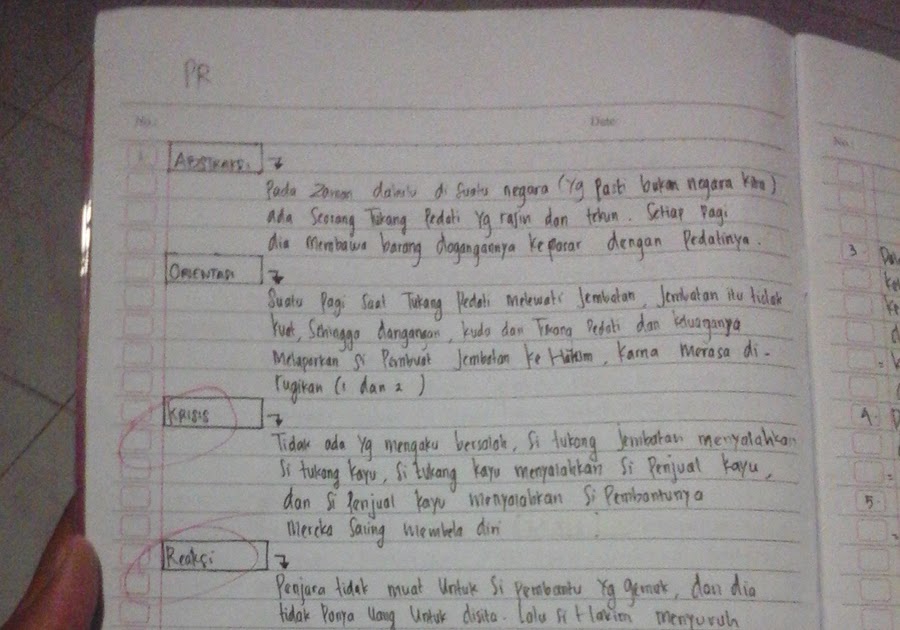 PR
No :
Date
No :
1
ABSTRAKSI
Pada Zaman dahulu di suatu negara (Yg pasti bukan negara kita)
ada Seorang Tukang Pedati Yg rajin dan tekun. Setiap Pagi
dia Membawa barang dagangannya kepasar dengan Pedatinya.
ORIENTASI
Suatu Pagi Saat Tukang Pedati Melewati Jembatan, Jembatan itu tidak
kuat, Sehingga dangangan, kuda dan Tukang Pedati dan keluarganya
Melaporkan Si Pembuat Jembatan ke Hakim, Karna Merasa di-
rugikan (1 dan 2)
KRISIS
Tidak ada Yg mengaku bersalah, Si tukang Jembatan menyalahkan
Si tukang kayu, Si tukang kayu menyalahkan Si Penjual kayu,
dan Si Penjual kayu Menyalahkan Si Pembantunya
Mereka Saling Membela diri
Reaksi
Penjara tidak muat Untuk Si Pembantu Yg gemuk, dan dia
tidak Punya Uang Untuk disita. Lalu Si Hakim menyuruh
3.
4.
5.